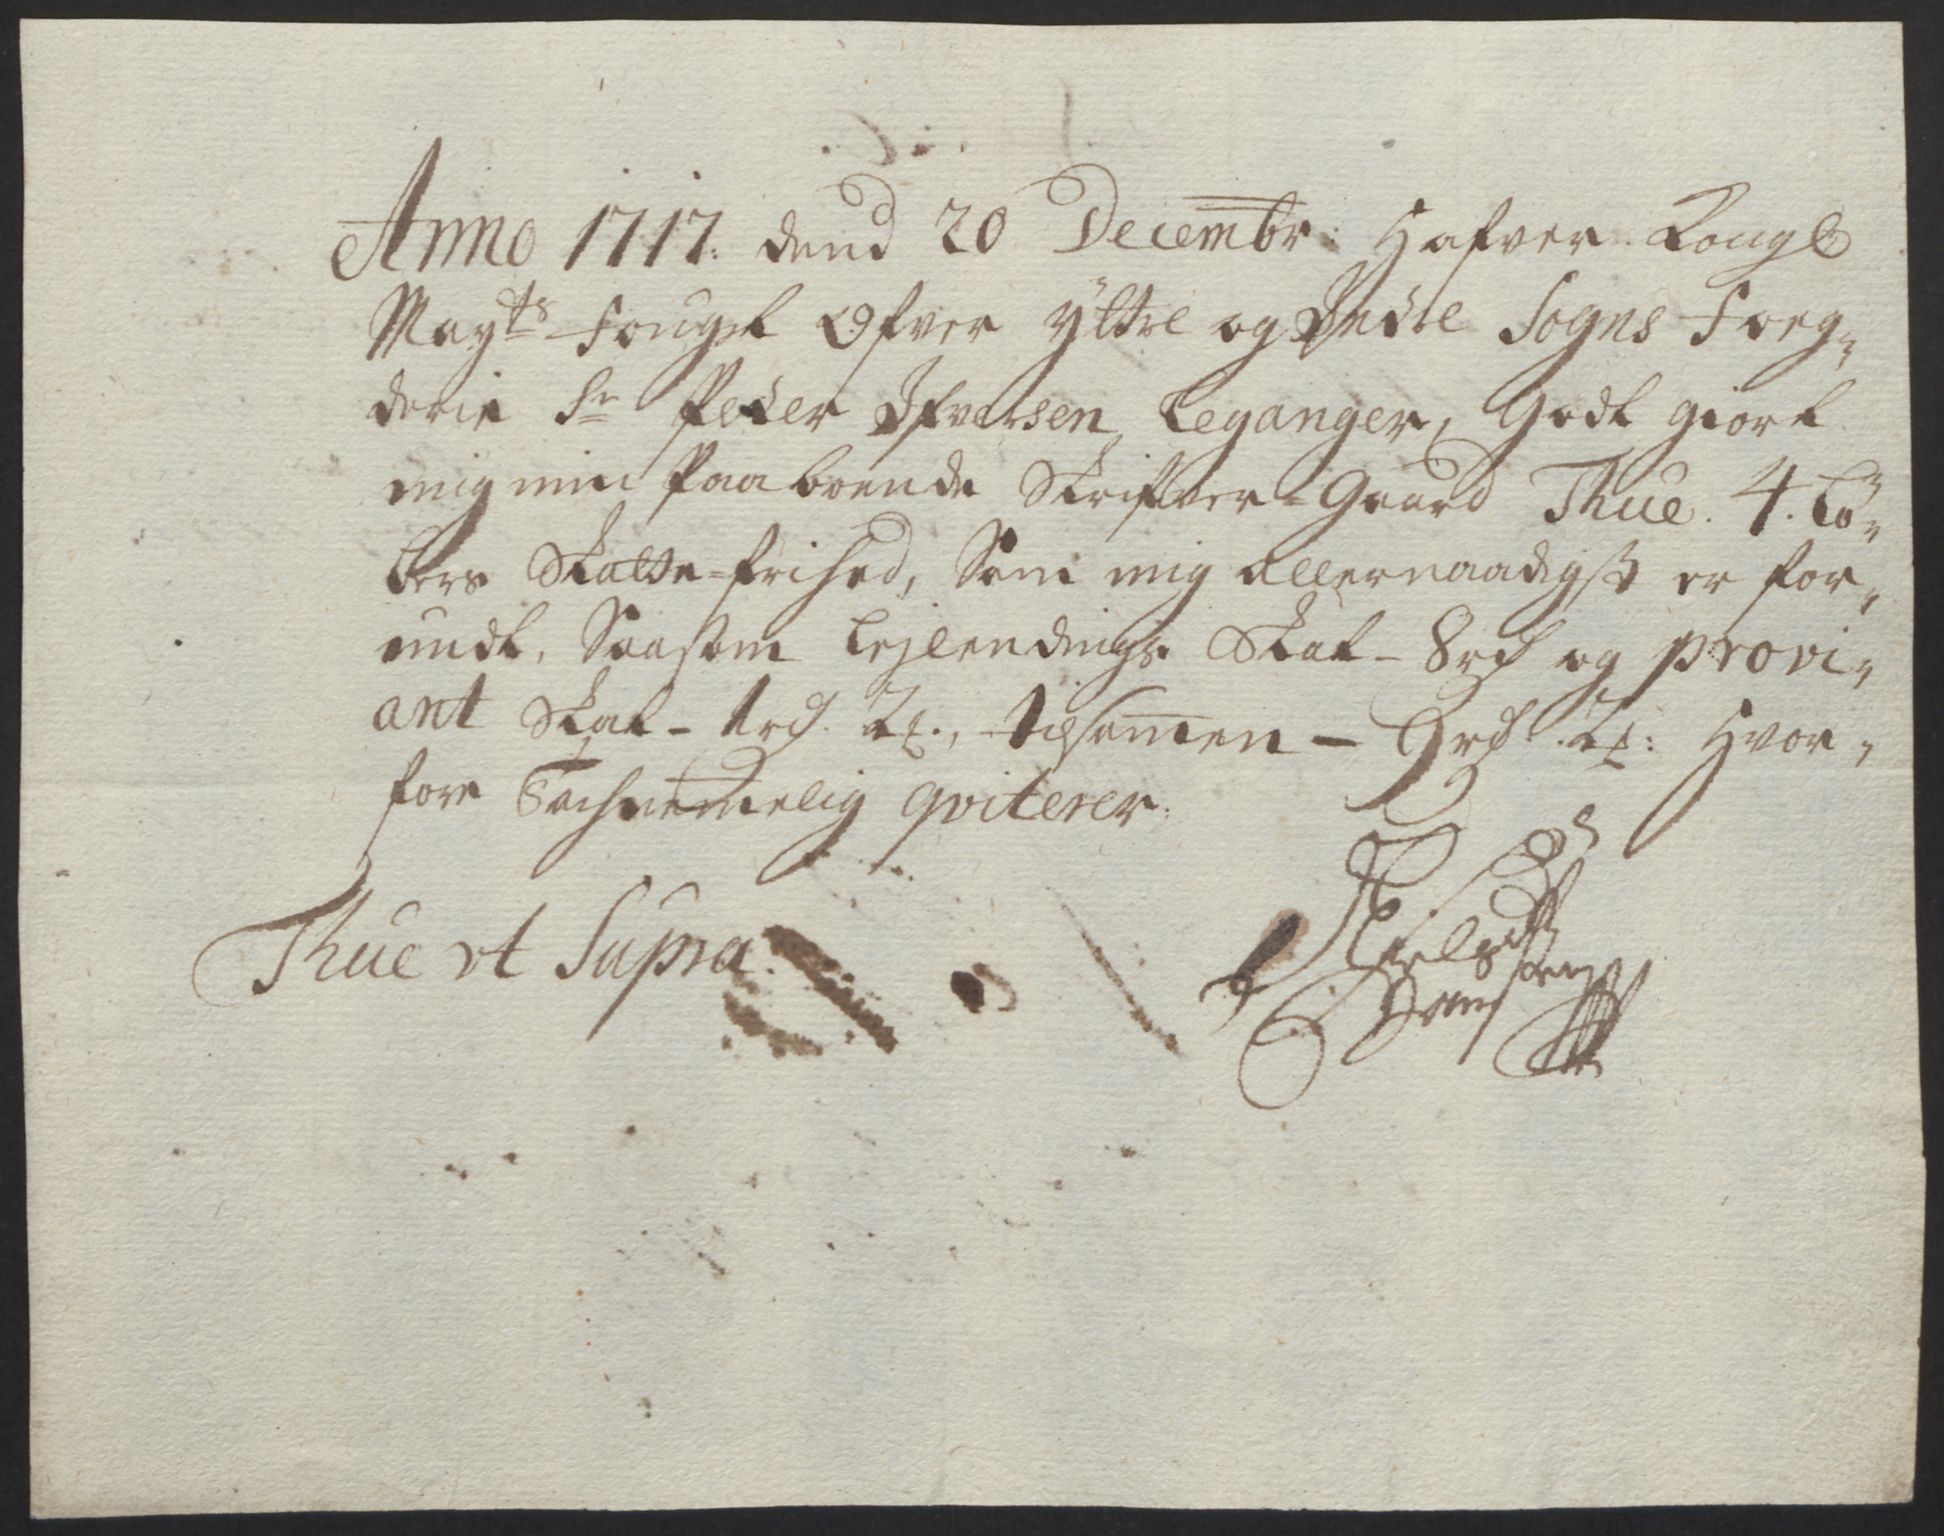 Anno 1717. dend 20 Decembr: Hafver Kongl
Mayts Fougt Ofver Yttre og Indre Sogns Foug-
derie Sr Peder Ifversen Leganger, Godt giort
mig min Paaboende Skrifver-Gaard Thue. 4. Lö-
bers Skatte-frihed, Som mig allernaadigst er for-
undt, Saasom Lejlendings Skat - 8rd og provi-
ant Skat - 1rd. 2 , tilsammen - 9rd 2 : Hvor-
fore Tachnemmelig qviterer.
Thue ut Supra.
Niels